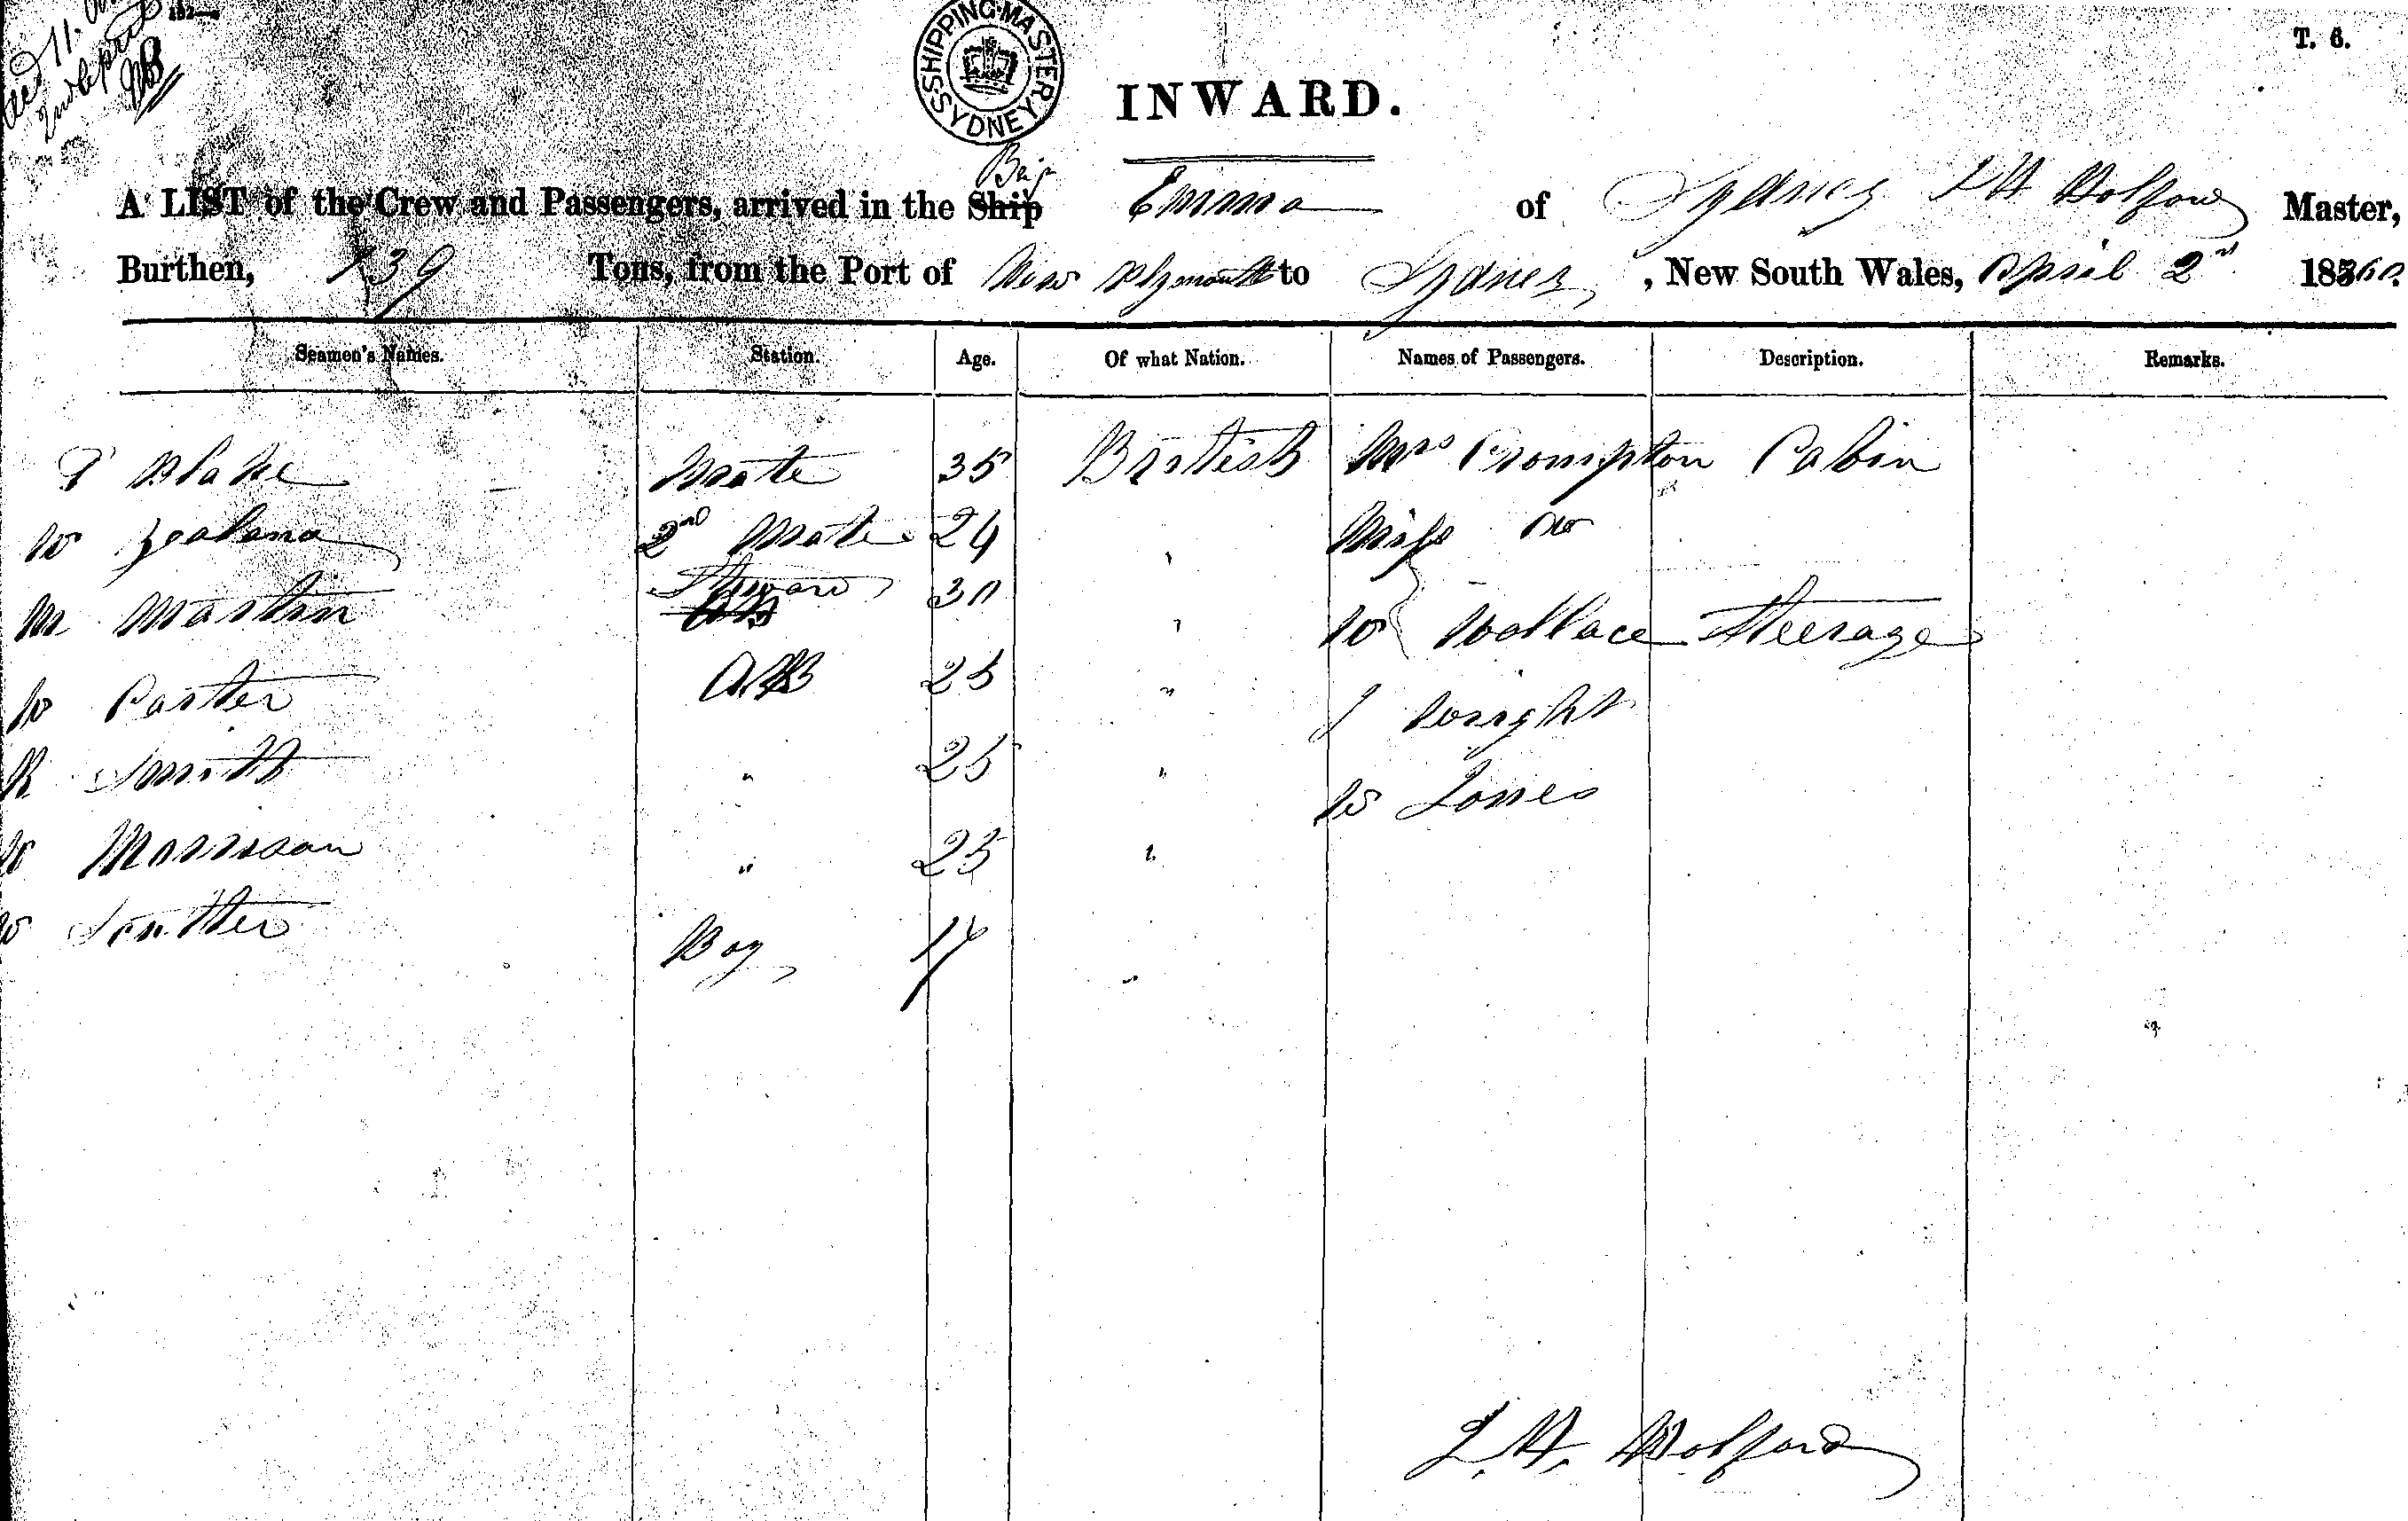 T. 6.
SHIPPING MASTER SYDNEY
INWARD.
Brig
A LIST of the Crew and Passengers, arrived in the Ship Emma of Sydney Master,
Burthen, 139 Tons, from the Port of New Plymouth to Sydney, New South Wales, April 2nd 1860.
Seamen's Names. Station. Age. Of what Nation. Names of Passengers. Description. Remarks.
Blake Mate 35 British Mrs Crompton Cabin
W 2nd Mate 24 " Miss Do
M Martin Steward 30 " W Wallace Steerage
W Carter AB 25 " J Wright
R Smith " 25 " W Jones
W Morrison " 25 "
W Boy 17 "